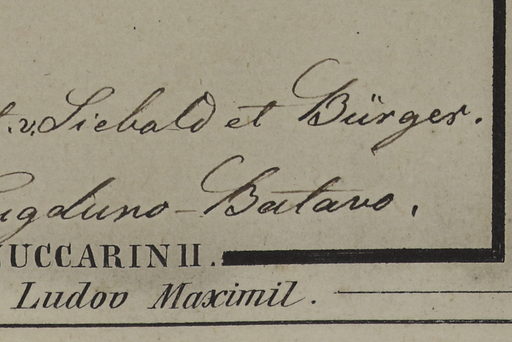 v. Siebald et Bürger.
Lugduno-Batavo.
ZUCCARINII.
Ludov Maximil.